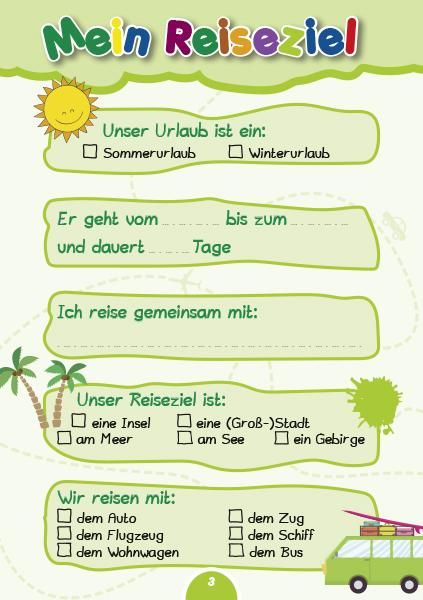 Mein Reiseziel
Unser Urlaub ist ein:
Sommerurlaub Winterurlaub
Er geht vom __.__.__ bis zum __.__.__
und dauert __.__ Tage
Ich reise gemeinsam mit:
Unser Reiseziel ist:
eine Insel eine (Groß-)Stadt
am Meer am See ein Gebirge
Wir reisen mit:
dem Auto dem Zug
dem Flugzeug dem Schiff
dem Wohnwagen dem Bus
3